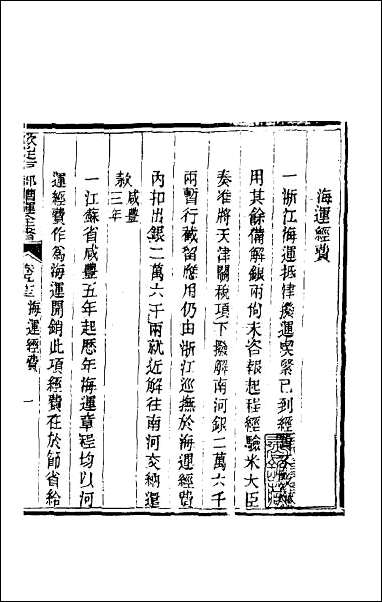 海運經費
一浙江海運抵津撥運喫緊已到經費不
用其餘備解銀兩尚未咨報起程經驗米大臣
奏准將天津關稅項下撥解南河銀二萬六千
兩暫行截留應用仍由浙江巡撫於海運經費
內扣出銀二萬六千兩就近解往南河交納還
款 咸豐三年
一江蘇省咸豐五年起歷年海運章程均以河
運經費作為海運開銷此項經費在於節省給
欽定戶部漕運全書 卷九十三 海運經費 一